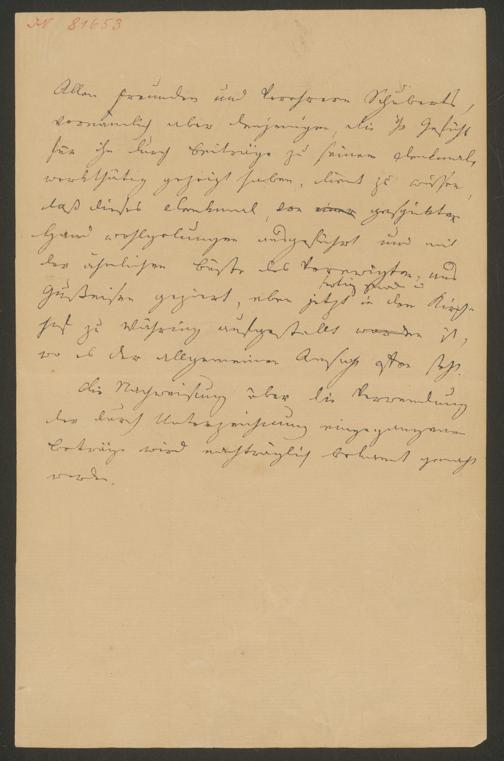 JN 81653
Allen Freunden und Verehrern Schuberts,
vornämlich aber denjenigen, die ihr Gefühl
für ihn durch Beiträge zu seinem Denkmal
werkthätig gezeigt haben, dient zu wissen,
daß dieses Denkmal, von einer geschickter
Hand wohlgelungen ausgeführt und mit
der ähnlichen Büste des Verewigten aus
Gußeisen geziert, eben jetzt in dem Kirch-
hofe zu Währing aufgestellt worden ist,
wo es der allgemeinen Ansicht offen steht.
Die Nachweisung über die Verwendung
der durch Unterzeichnung eingegangenen
Beträge wird nachträglich bekannt gemacht
werden.